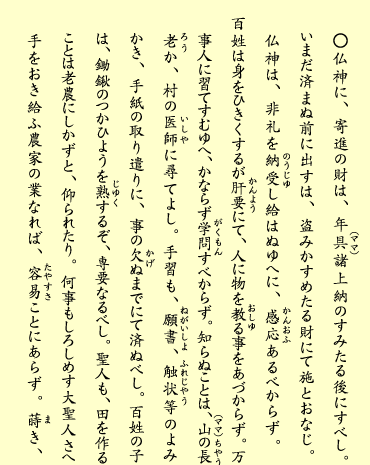 〇仏神に、寄進の財は、年具(ママ)諸上納のすみたる後にすべし。
いまだ済まぬ前に出すは、盗みかすめたる財にて施とおなじ。
仏神は、非礼を納受(のうじゆ)し給はぬゆへに、感応(かんおふ)あるべからず。
百姓は身をひきくするが肝要(かんよう)にて、人に物を教(おしゆ)る事をあづからず。万
事人に習てすむゆへ、かならず学問(がくもん)すべからず。知らぬことは、山の長(ママ)(ちやう)
老(ろう)か、村の医師(いしや)に尋てよし。手習も、願書(ねがいしよ)、触状(ふれじやう)等のよみ
かき、手紙の取り遣りに、事の欠(かげ)ぬまでにて済ぬべし。百姓の子
は、鋤鍬のつかひようを熟(じゆく)するぞ、専要なるべし。聖人も、田を作る
ことは老農にしかずと、仰られたり。何事もしろしめす大聖人さへ
手をおき給ふ農家の業なれば、容易(たやすき)ことにあらず。蒔(ま)き、